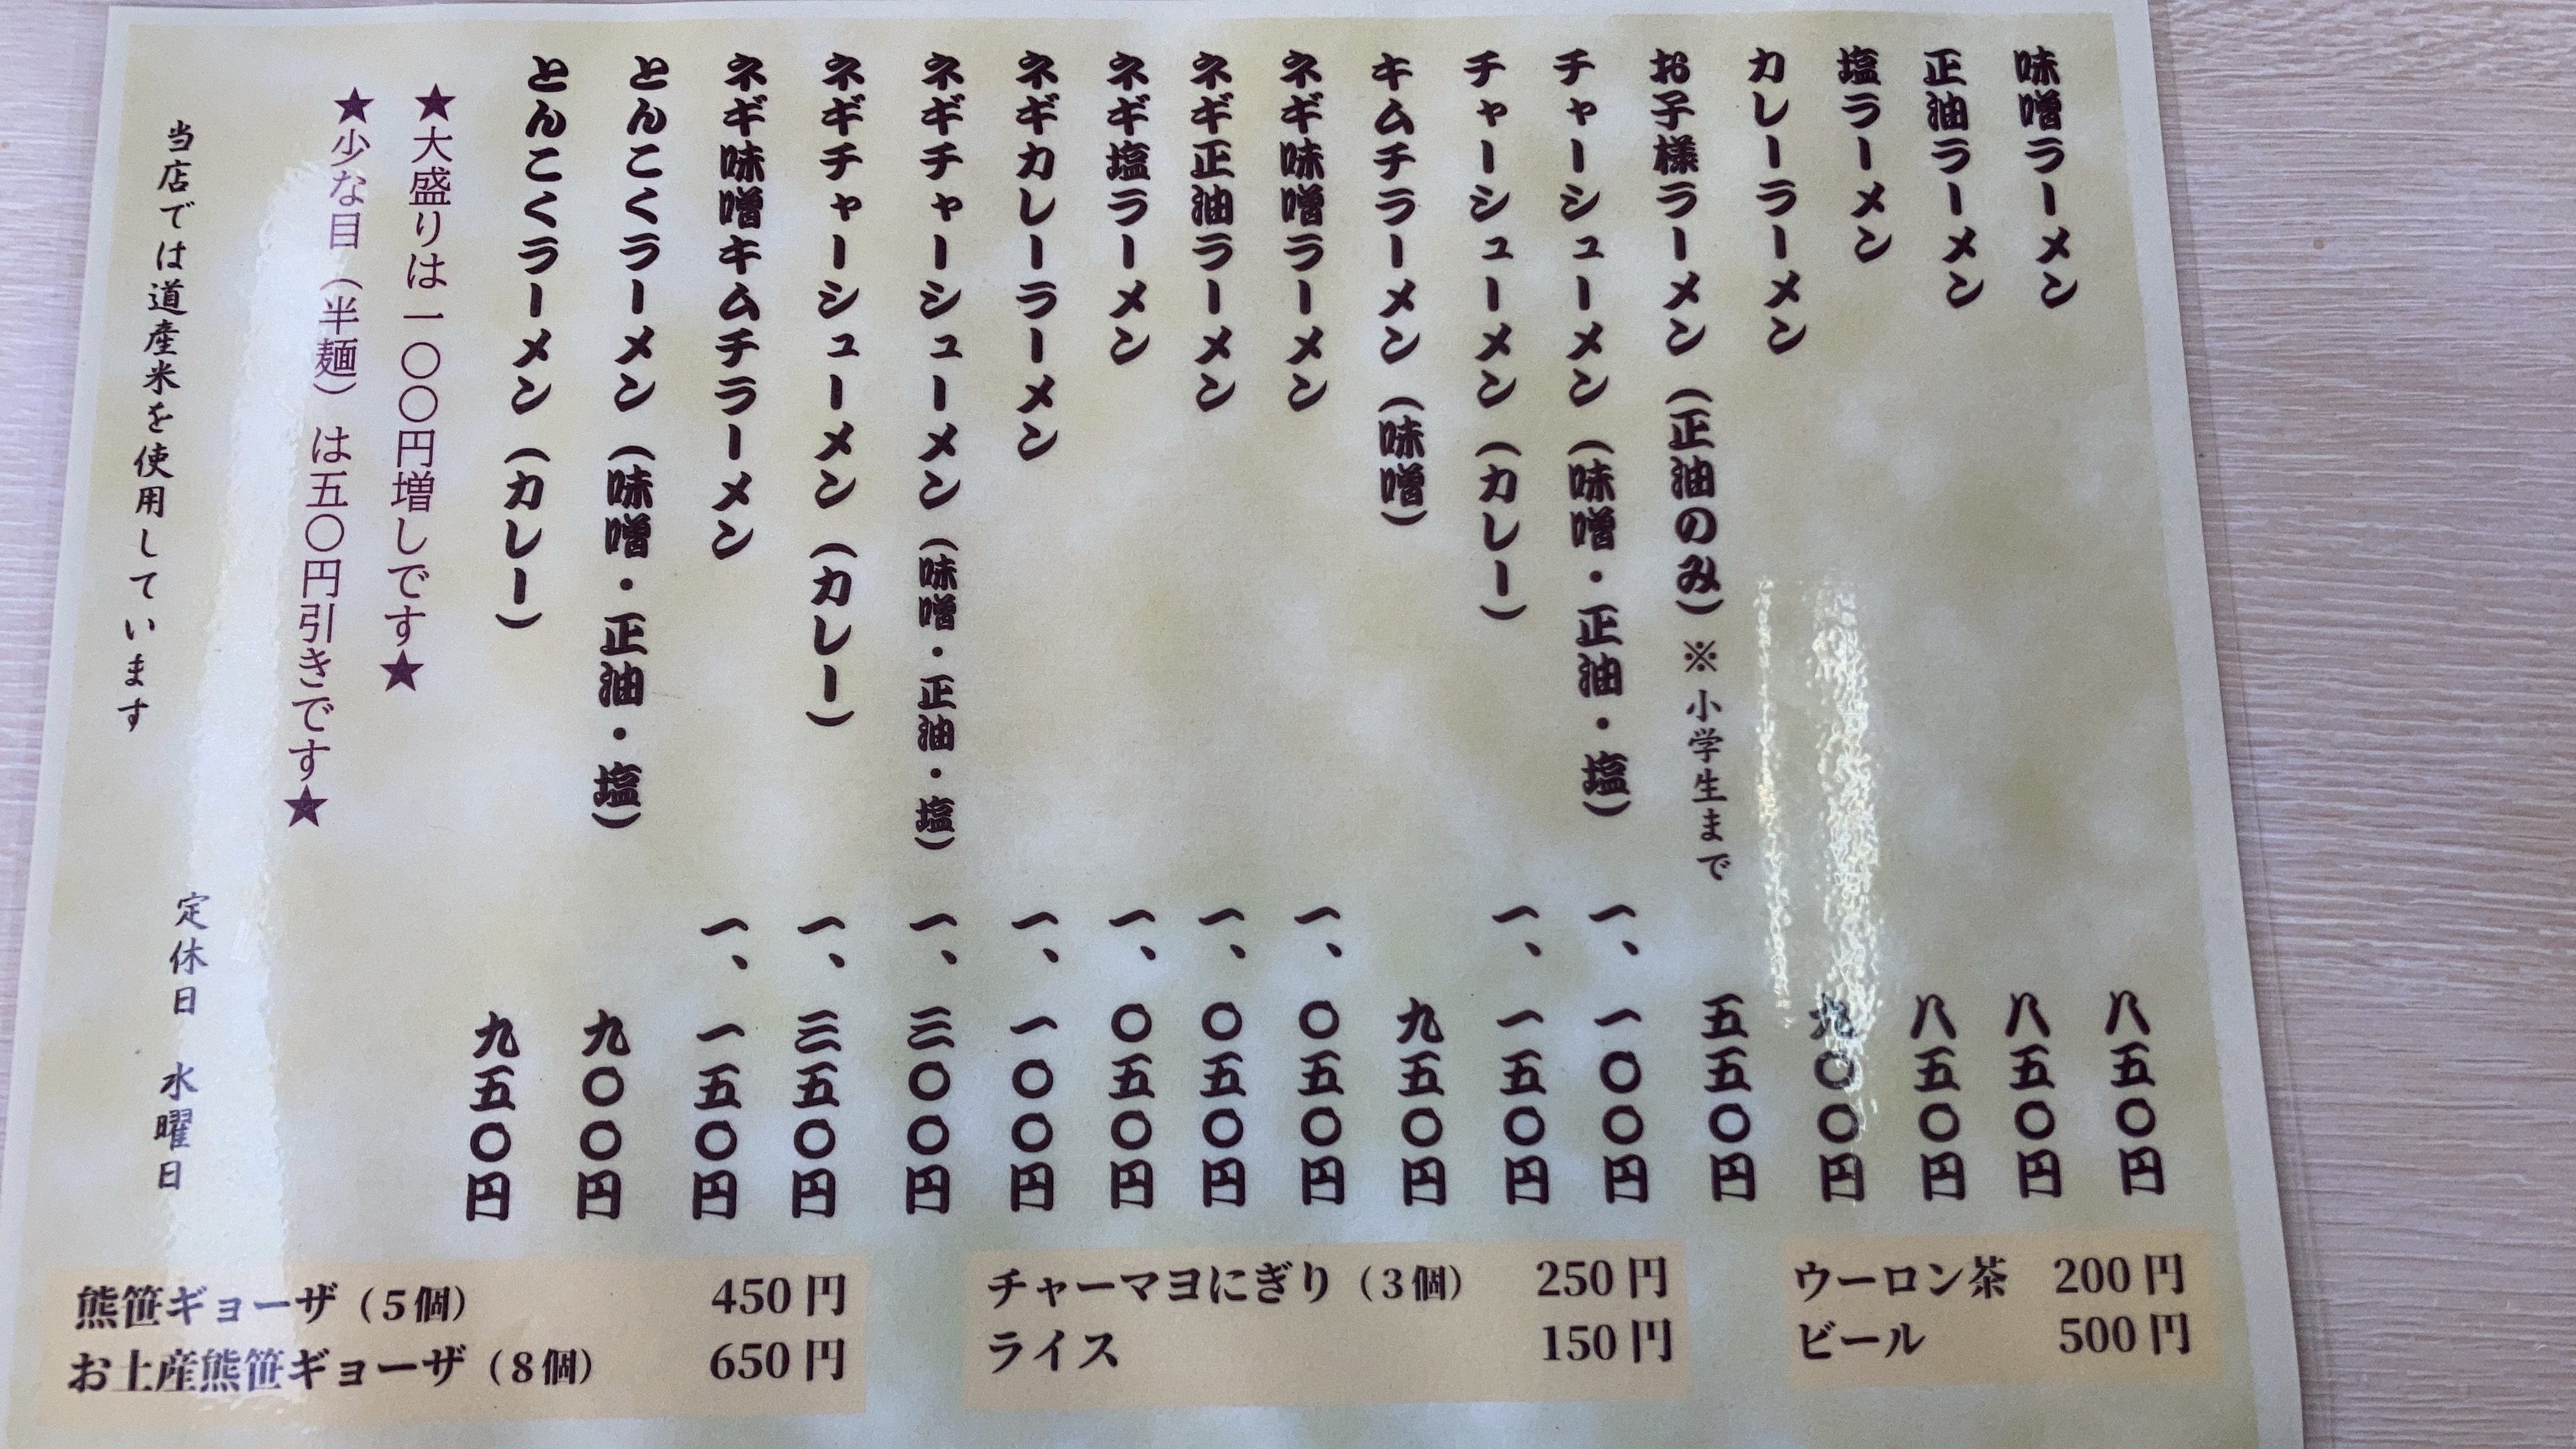 味噌ラーメン 八五〇円
正油ラーメン 八五〇円
塩ラーメン 八五〇円
カレーラーメン 九〇〇円
お子様ラーメン（正油のみ）※小学生まで 五五〇円
チャーシューメン（味噌・正油・塩） 一、一〇〇円
チャーシューメン（カレー） 一、一五〇円
キムチラーメン（味噌） 九五〇円
ネギ味噌ラーメン 一、〇五〇円
ネギ正油ラーメン 一、〇五〇円
ネギ塩ラーメン 一、〇五〇円
ネギカレーラーメン 一、一〇〇円
ネギチャーシューメン（味噌・正油・塩） 一、三〇〇円
ネギチャーシューメン（カレー） 一、三五〇円
ネギ味噌キムチラーメン 一、一五〇円
とんこくラーメン（味噌・正油・塩） 九〇〇円
とんこくラーメン（カレー） 九五〇円
★大盛りは一〇〇円増しです★
★少な目（半麺）は五〇円引きです★
当店では道産米を使用しています 定休日 水曜日
熊笹ギョーザ（5個） 450円
お土産熊笹ギョーザ（8個） 650円
チャーマヨにぎり（3個） 250円
ライス 150円
ウーロン茶 200円
ビール 500円